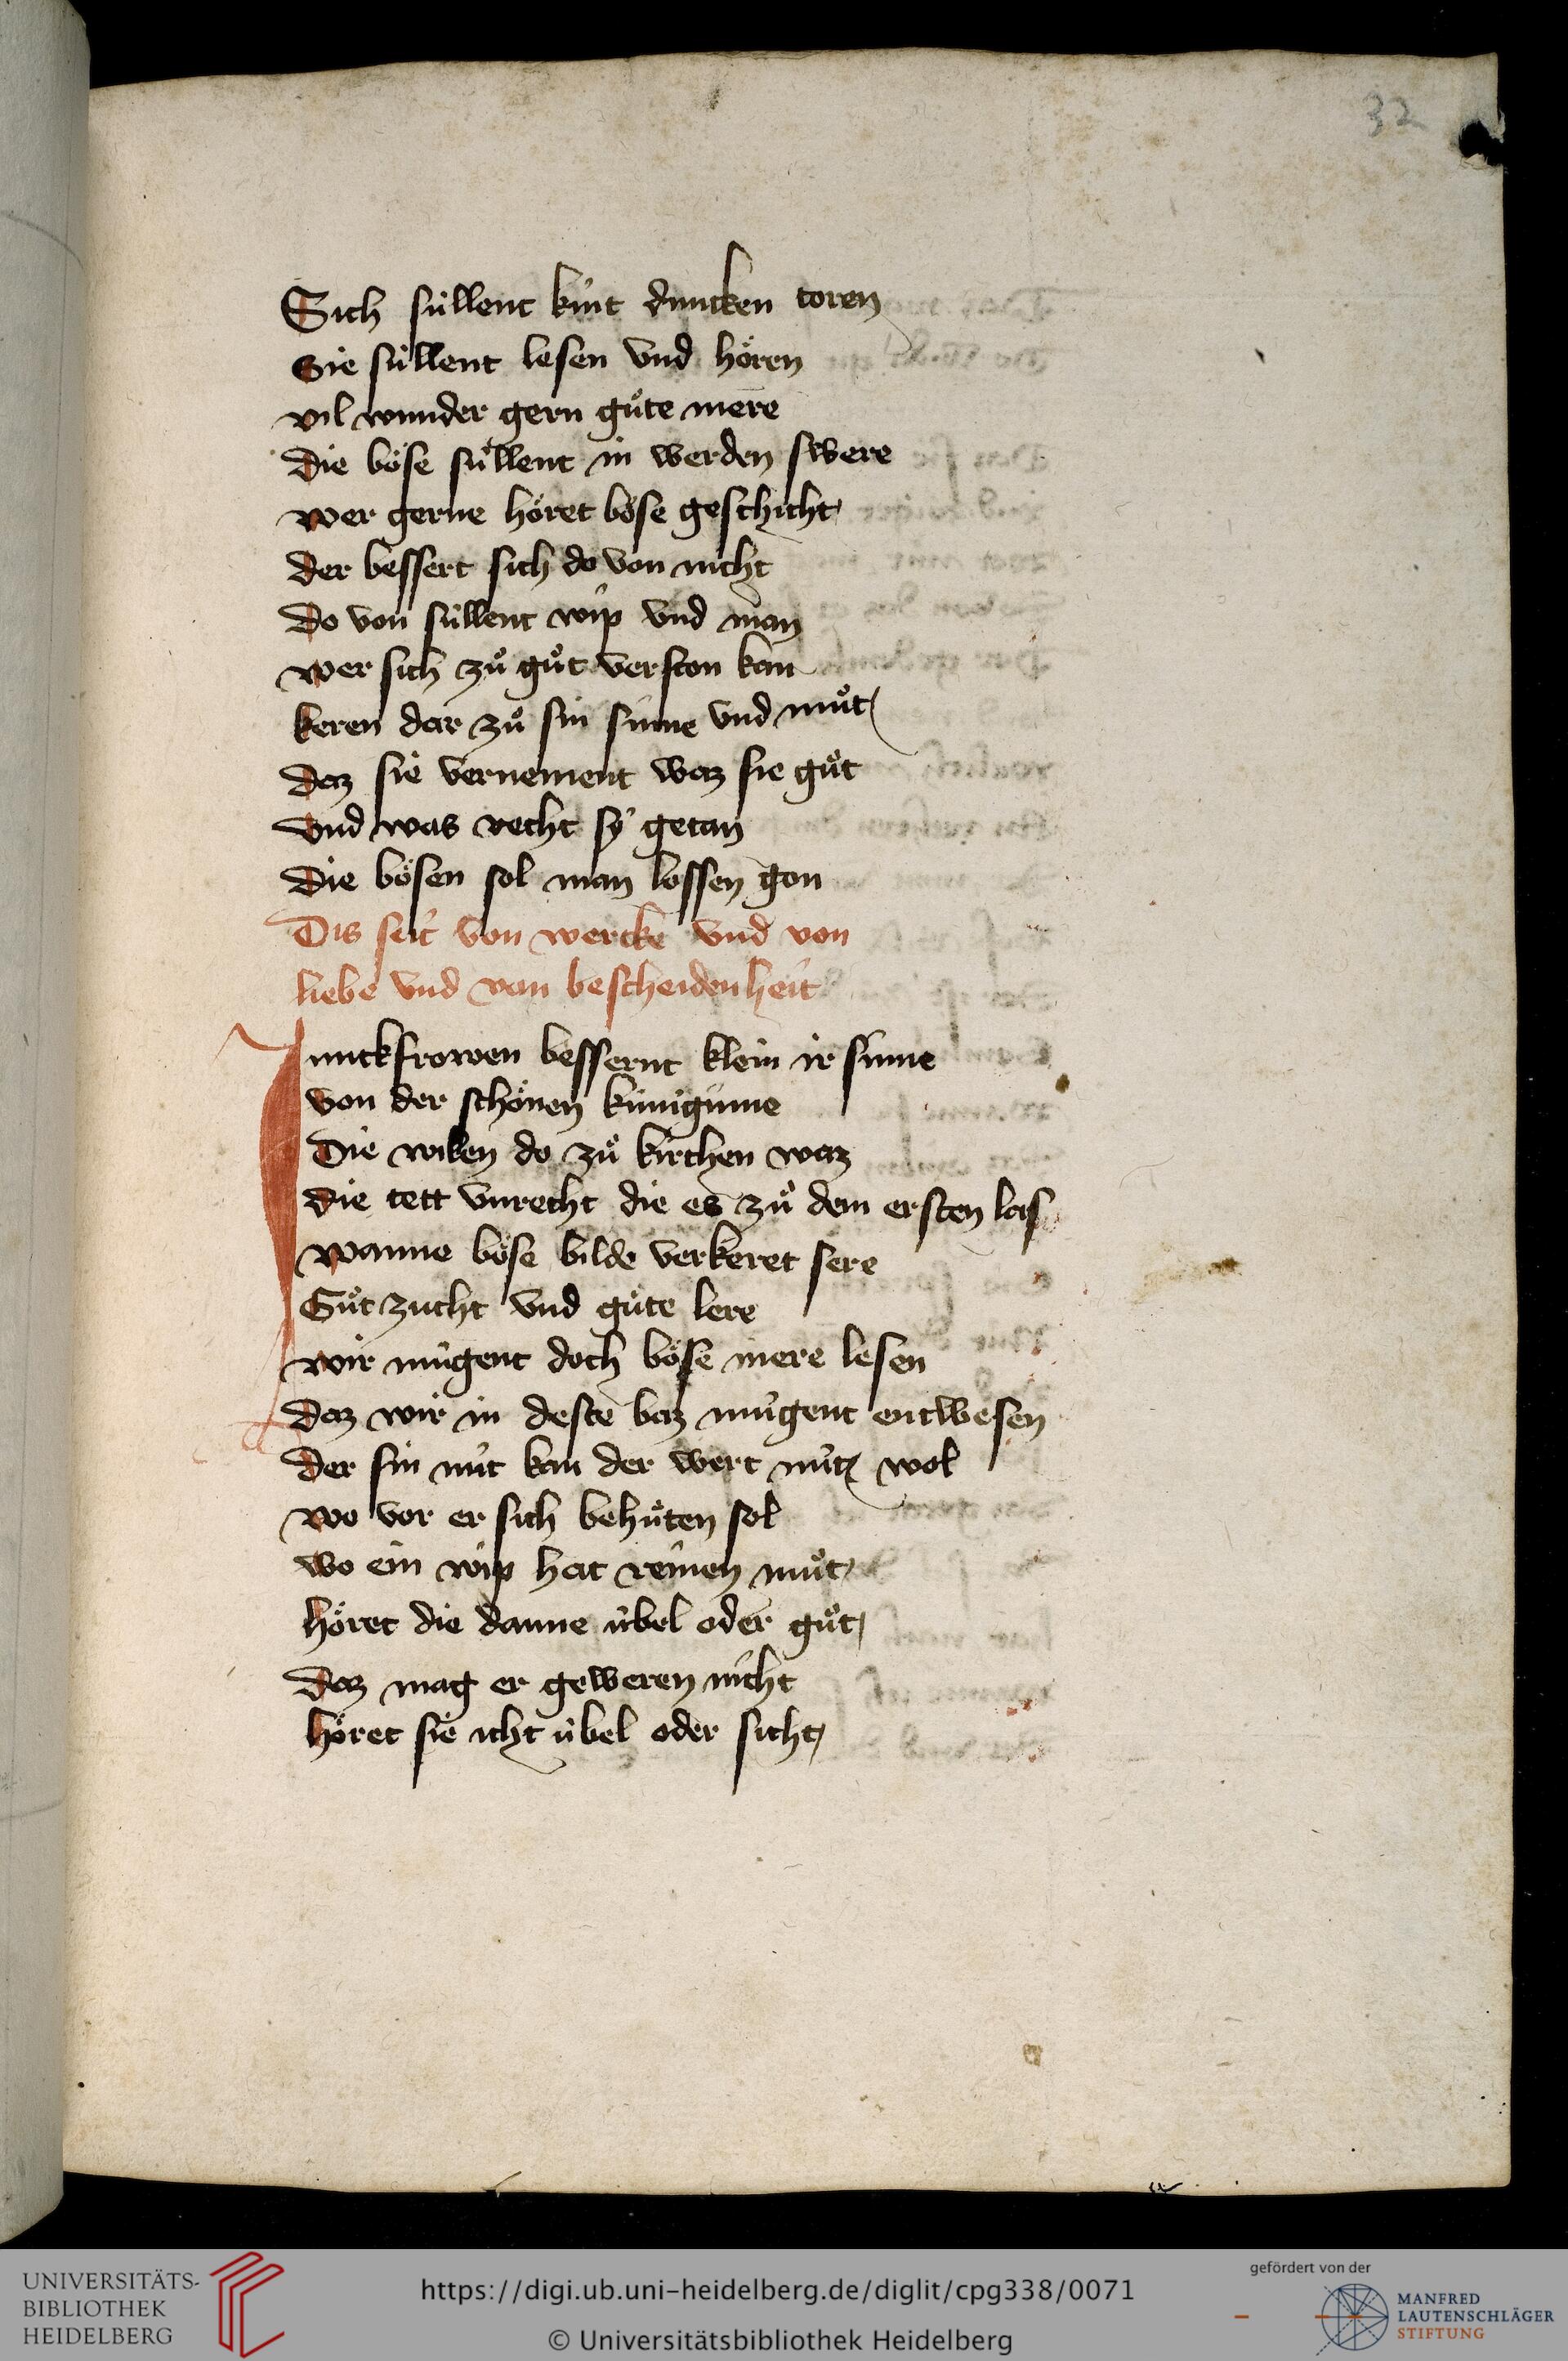 32
Sich süllent kint duncken toren
Sie süllent lesen vnd hören
vil wunder gern guͦte mere
die böse süllent in werden swere
wer gerne höret böse geschicht
der bessert sich do von nicht
Do von süllent wip vnd man
wer sich zuͦ guͦt verston kan
keren dar zuͦ sin sinne vnd muͦt
daz sie vernement waz sie guͦt
vnd was recht sy getan
die bösen sol man lossen gon
Dis seit von wercke vnd von
liebe vnd von bescheidenheit
Junckfrowen bessernt klein ir sinne
von der schönen künigunne
Die wilen do zuͦ kirchen waz
die tett vnrecht die es zuͦ dem ersten las
wanne böse bilde verkeret sere
Guͦt zucht vnd guͦte lere
wir mügent doch böse mere lesen
daz wir in deste baz mügent entwesen
der sin nüt kan der wert nüt wol
wo vor er sich behuͦten sol
wo ein wip hat reinen muͦt
höret die danne übel oder guͦt
daz mag er geweren nicht
höret sie icht übel oder sicht
UNIVERSITÄTS-
BIBLIOTHEK
HEIDELBERG
https://digi.ub.uni-heidelberg.de/diglit/cpg338/0071
© Universitätsbibliothek Heidelberg
gefördert von der
MANFRED
LAUTENSCHLÄGER
STIFTUNG